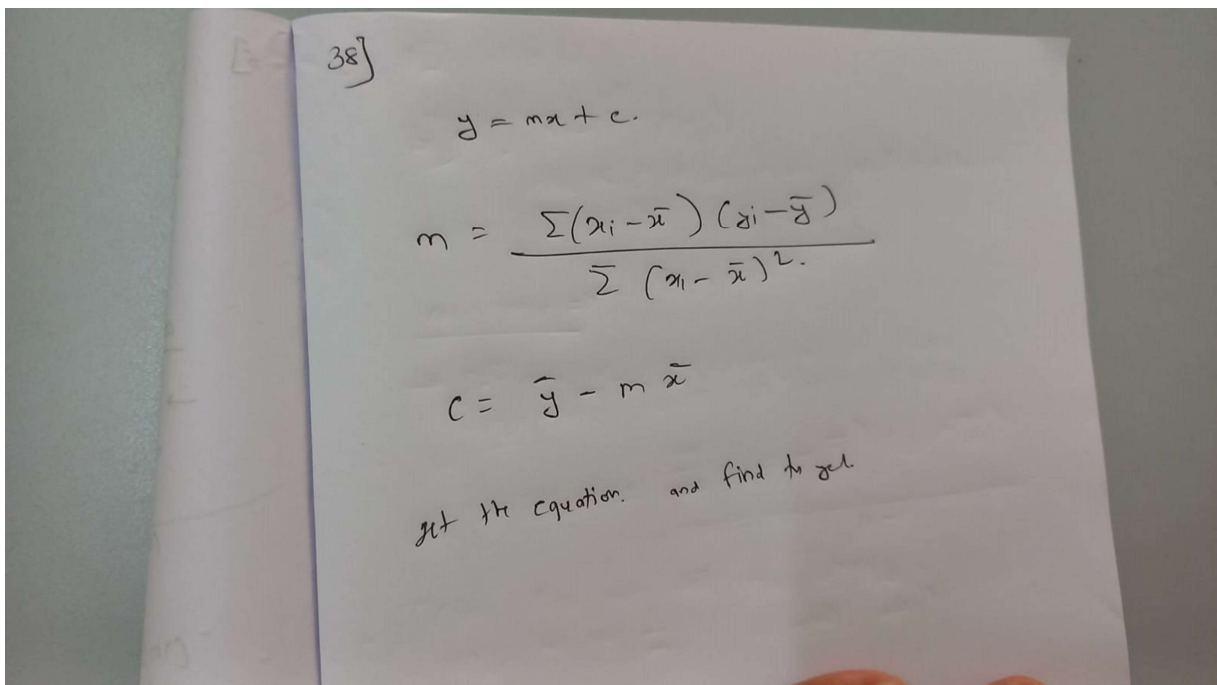 38]
y = mx + c.
m = Σ(xi - x̄) (yi - ȳ)
Σ (xi - x̄)².
c = ȳ - m x̄
get the equation. and find